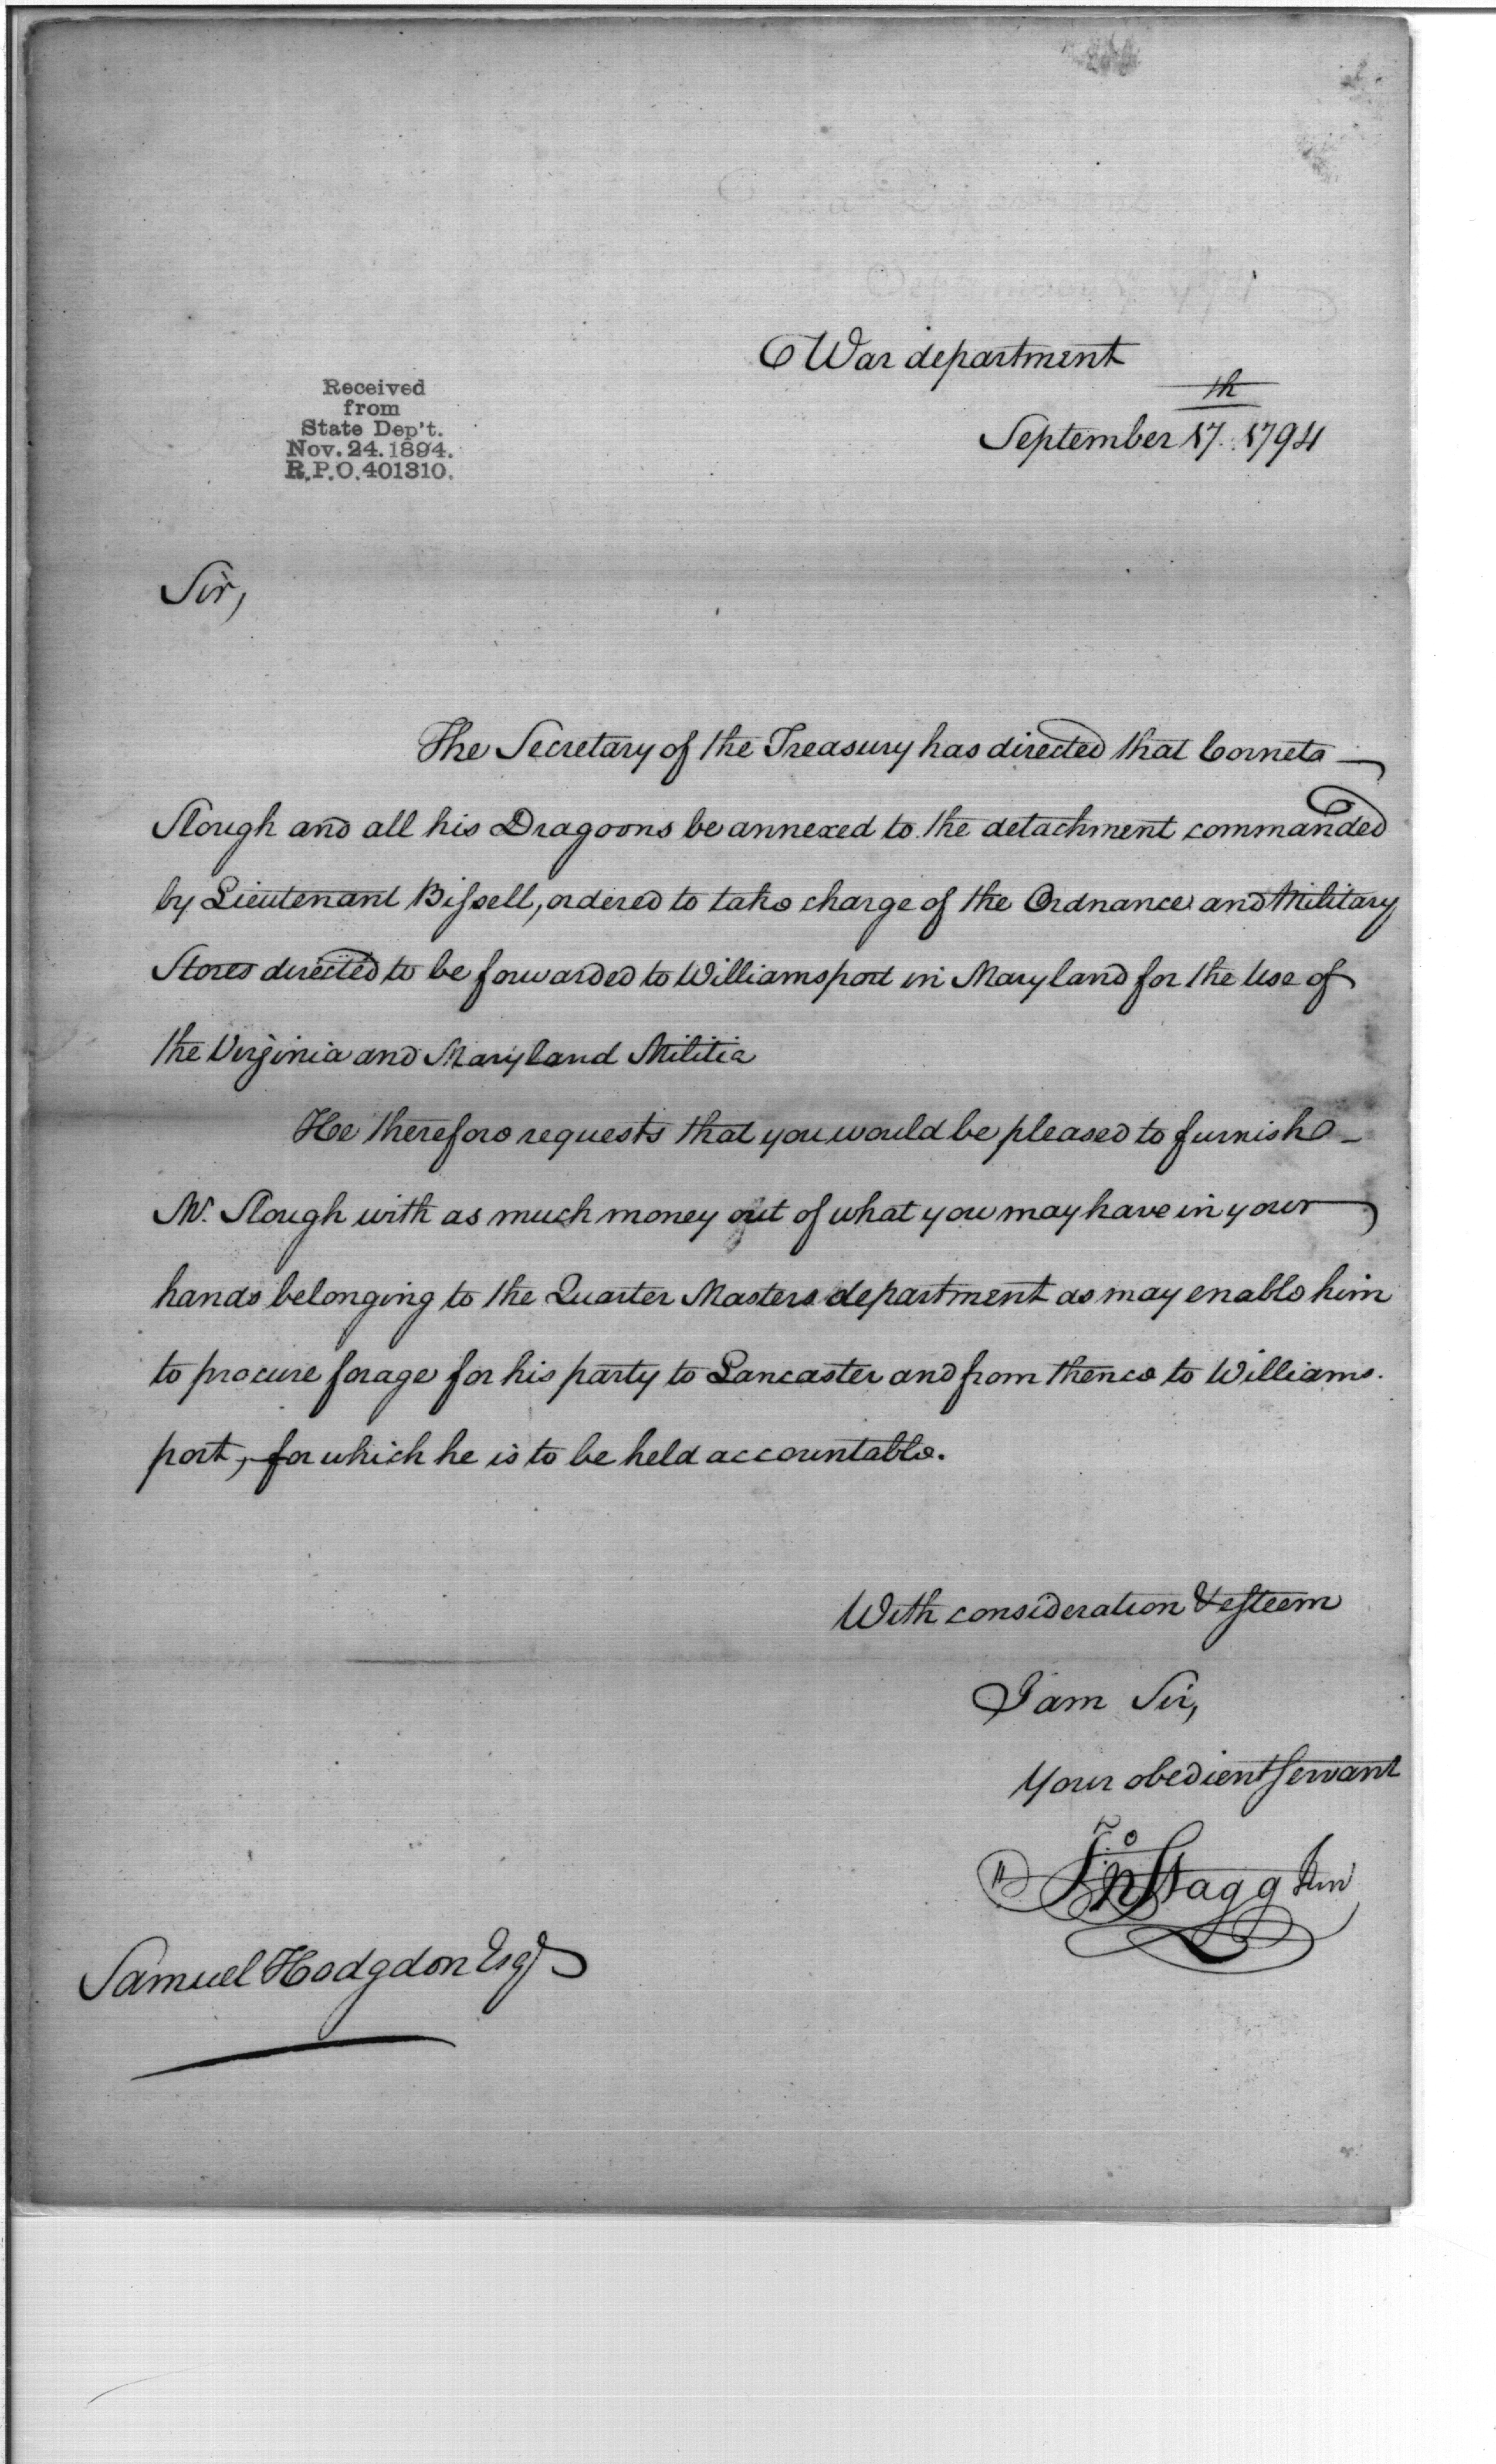 War department
September 17th 1794
Received
from
State Dep't.
Nov. 24. 1894.
R.P.O. 401310.
Sir,
The Secretary of the Treasury has directed that Cornet
Slough and all his Dragoons be annexed to the detachment commanded
by Lieutenant Bissell, ordered to take charge of the Ordnance and Military
Stores directed to be forwarded to Williamsport in Maryland for the Use of
the Virginia and Maryland Militia
He therefore requests that you would be pleased to furnish
Mr. Slough with as much money out of what you may have in your
hands belonging to the Quarter Masters department as may enable him
to procure forage for his party to Lancaster and from thence to Williams-
port, for which he is to be held accountable.
With consideration & esteem
I am Sir,
Your obedient Servant
Jno Stagg Junr
Samuel Hodgdon Esqr